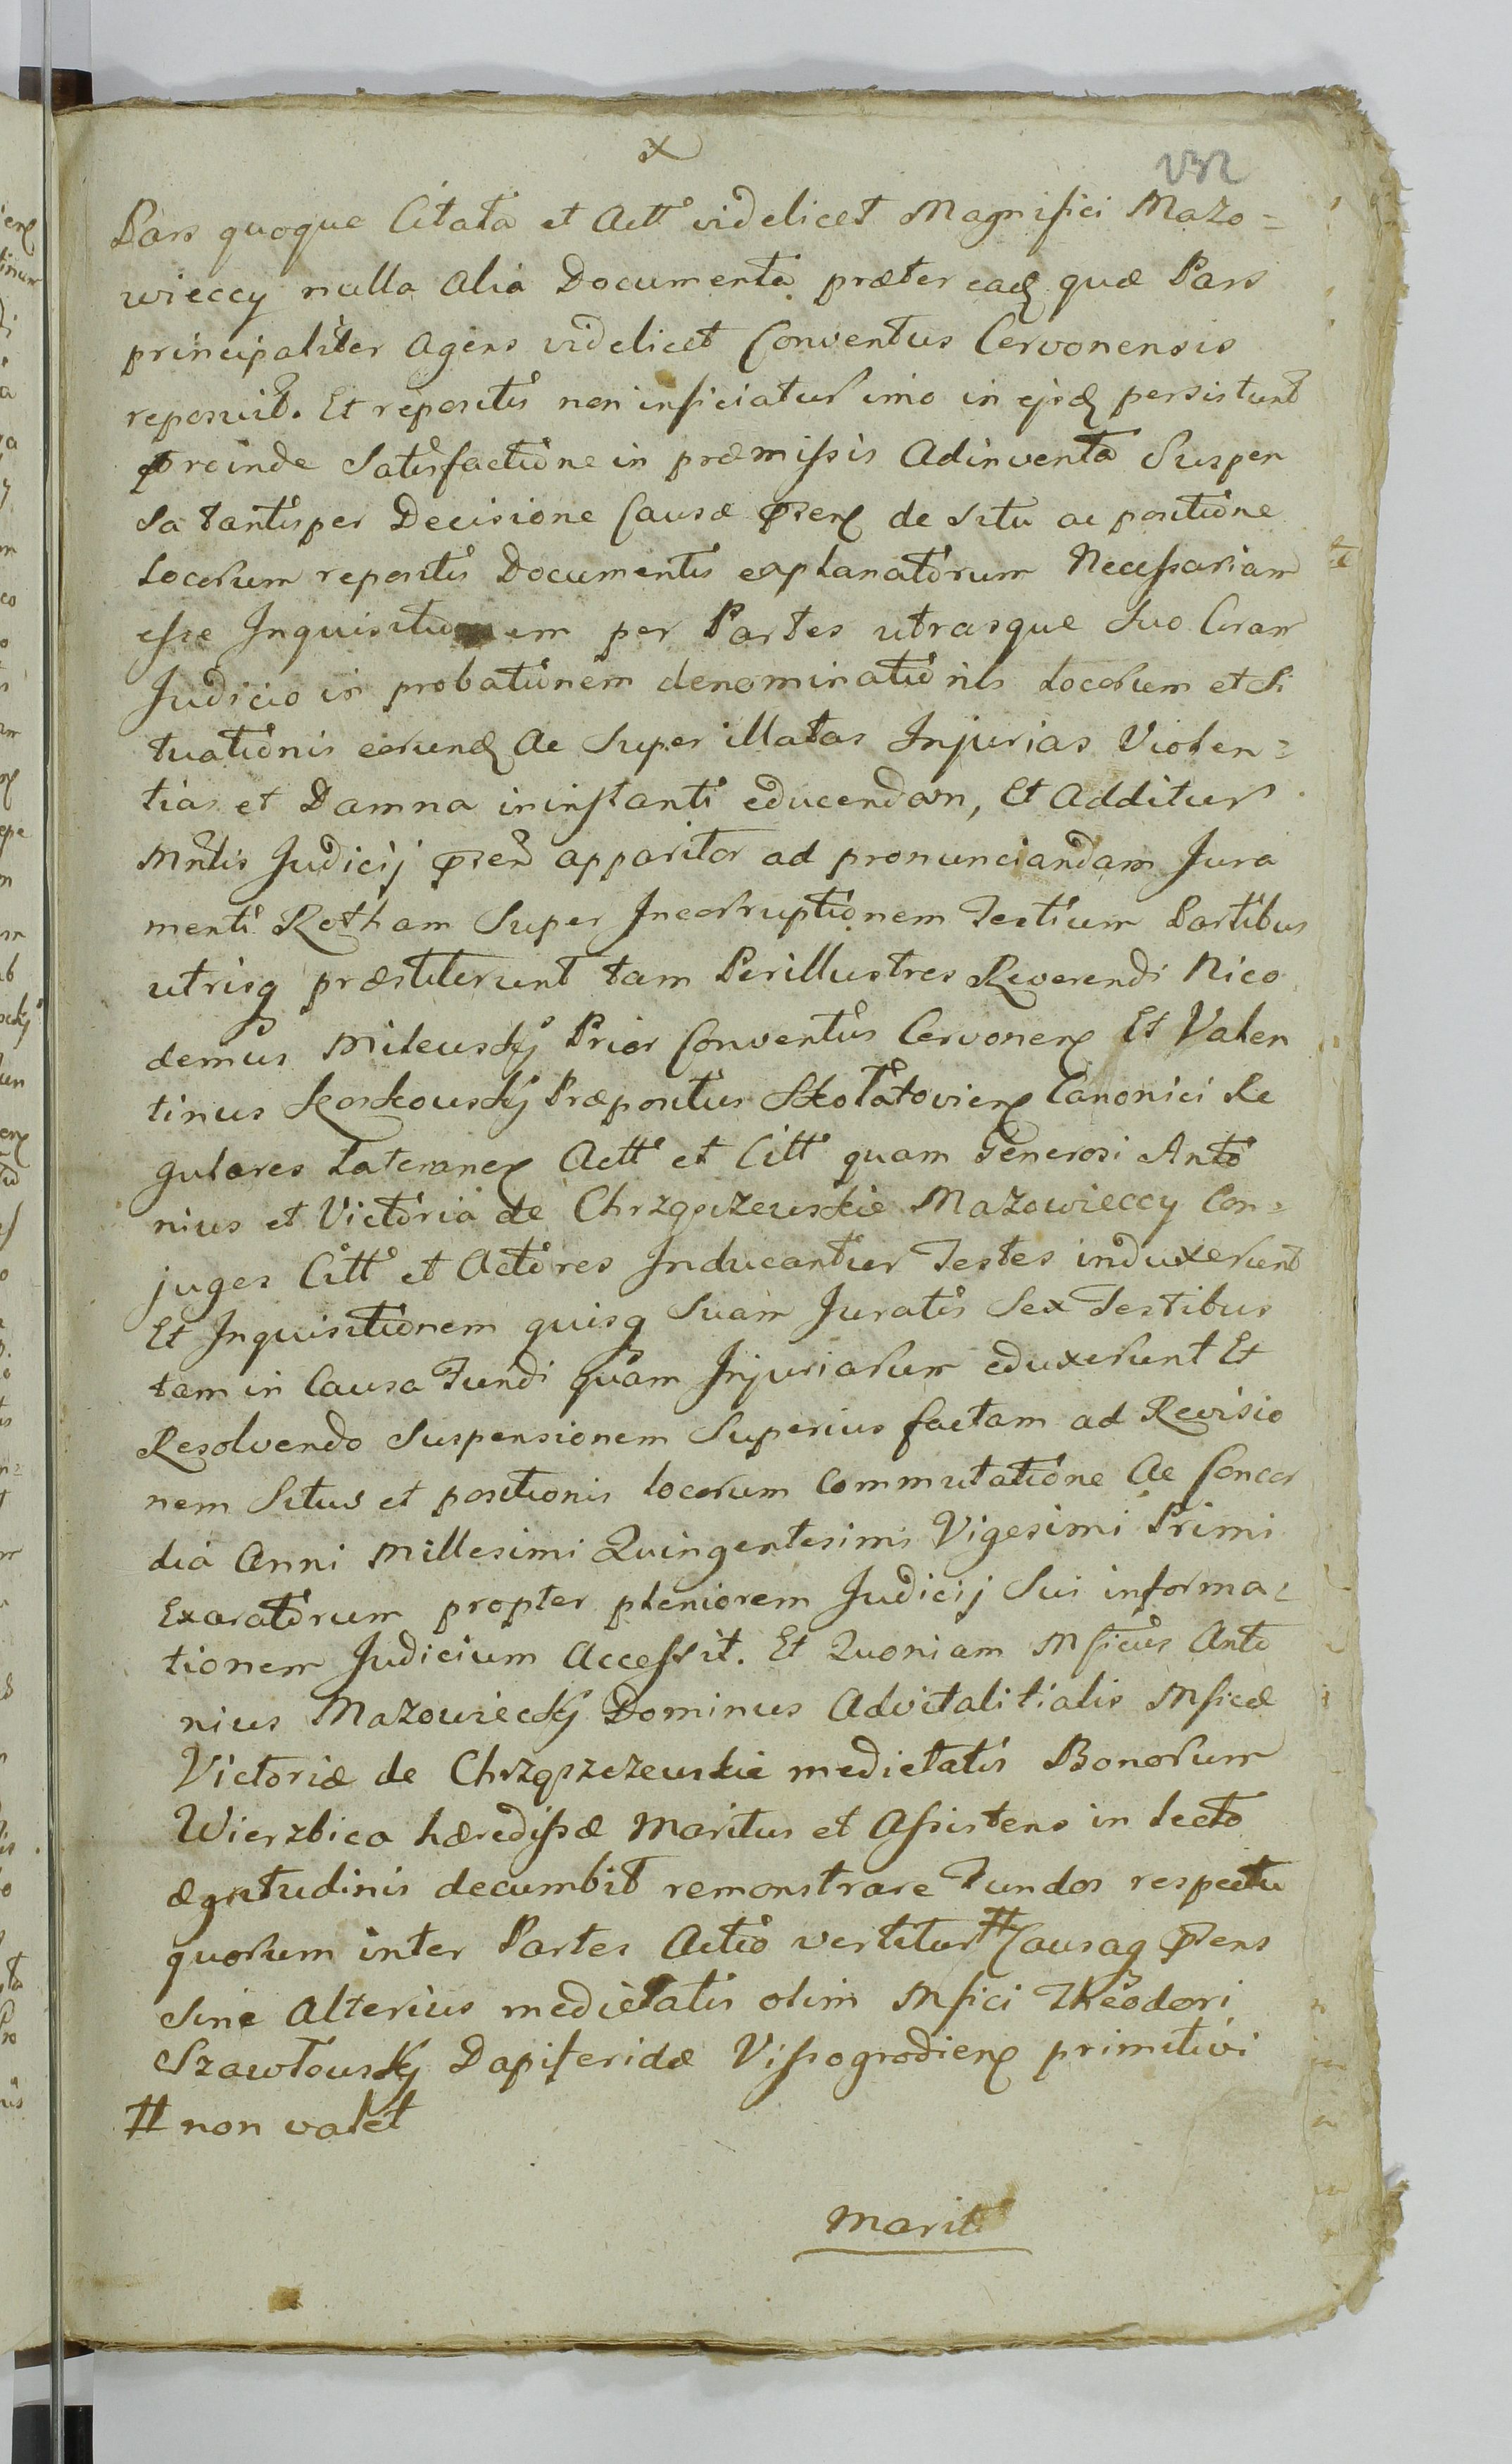 x
232
Pars quoque Citata et Actt videlicet Magnifici Mazo=
wieccy nulla alia Documenta præter eadẽ quæ Pars
principaliter Agens videlicet Conventus Cervonensis
reposuit. Et repositis non inficiatur imo in ejsdẽ persistunt
proinde Satisfactione in præmissis Adinventa Suspen
sa tantisper Decisione Causæ præsen de situ ac positione
Locorum repositis Documentis explanatorum Necessariam
esse Inquisitionem per Partes utrasque Suo Coram
Judicio in probationem denominationis Locorum et Si
tuationis eorundẽ Ac Super illatas Injurias Violen=
tias et Damna in instanti educendam, Et Additur
Mnlis Judicij præsen apparitor ad pronunciandam Jura
menti Rotham Super Incorruptionem Testium Partibus
utrisq præstiterunt tam Perillustres Reverendi Nico
demus Mileuskÿ Prior Conventus Cervonen Et Valen
tinus Koskouskÿ Præpositus Skołatovien Canonici Re
gulares Lateranen Actt et Citt quam Generosi Anto
nius et Victoria de Chrząszczewskie Mazowieccy Con=
juges Citt et Actores Inducantur Testes induxerunt
Et Inquisitionem quisq Suam Juratis Sex Testibus
tam in Causa Fundi quam Injuriarum eduxerunt Et
Resolvendo Suspensionem Superius factam ad Revisio
nem Situs et positionis locorum Commutatione Ac Concor
dia Anni Millesimi Quingentesimi Vigesimi Primi
Exaratorum propter pleniorem Judicij Sui informa=
tionem Judicium Accessit. Et Quoniam Mficus Anto
nius Mazowieckÿ Dominus Advitalitialis Mficæ
Victoriæ de Chrząszczewskie medietatis Bonorum
Wierzbica hæredissæ Maritus et Assistens in lecto
ægritudinis decumbit remonstrare Fundos respectu
quorum inter Partes Actio vertitur # Causaq præsens
Sine Alterius medietatis olim Mfici Theodori
Szawłouskÿ Dapiferidæ Vissogrodien primitivi
# non valet
Mariti